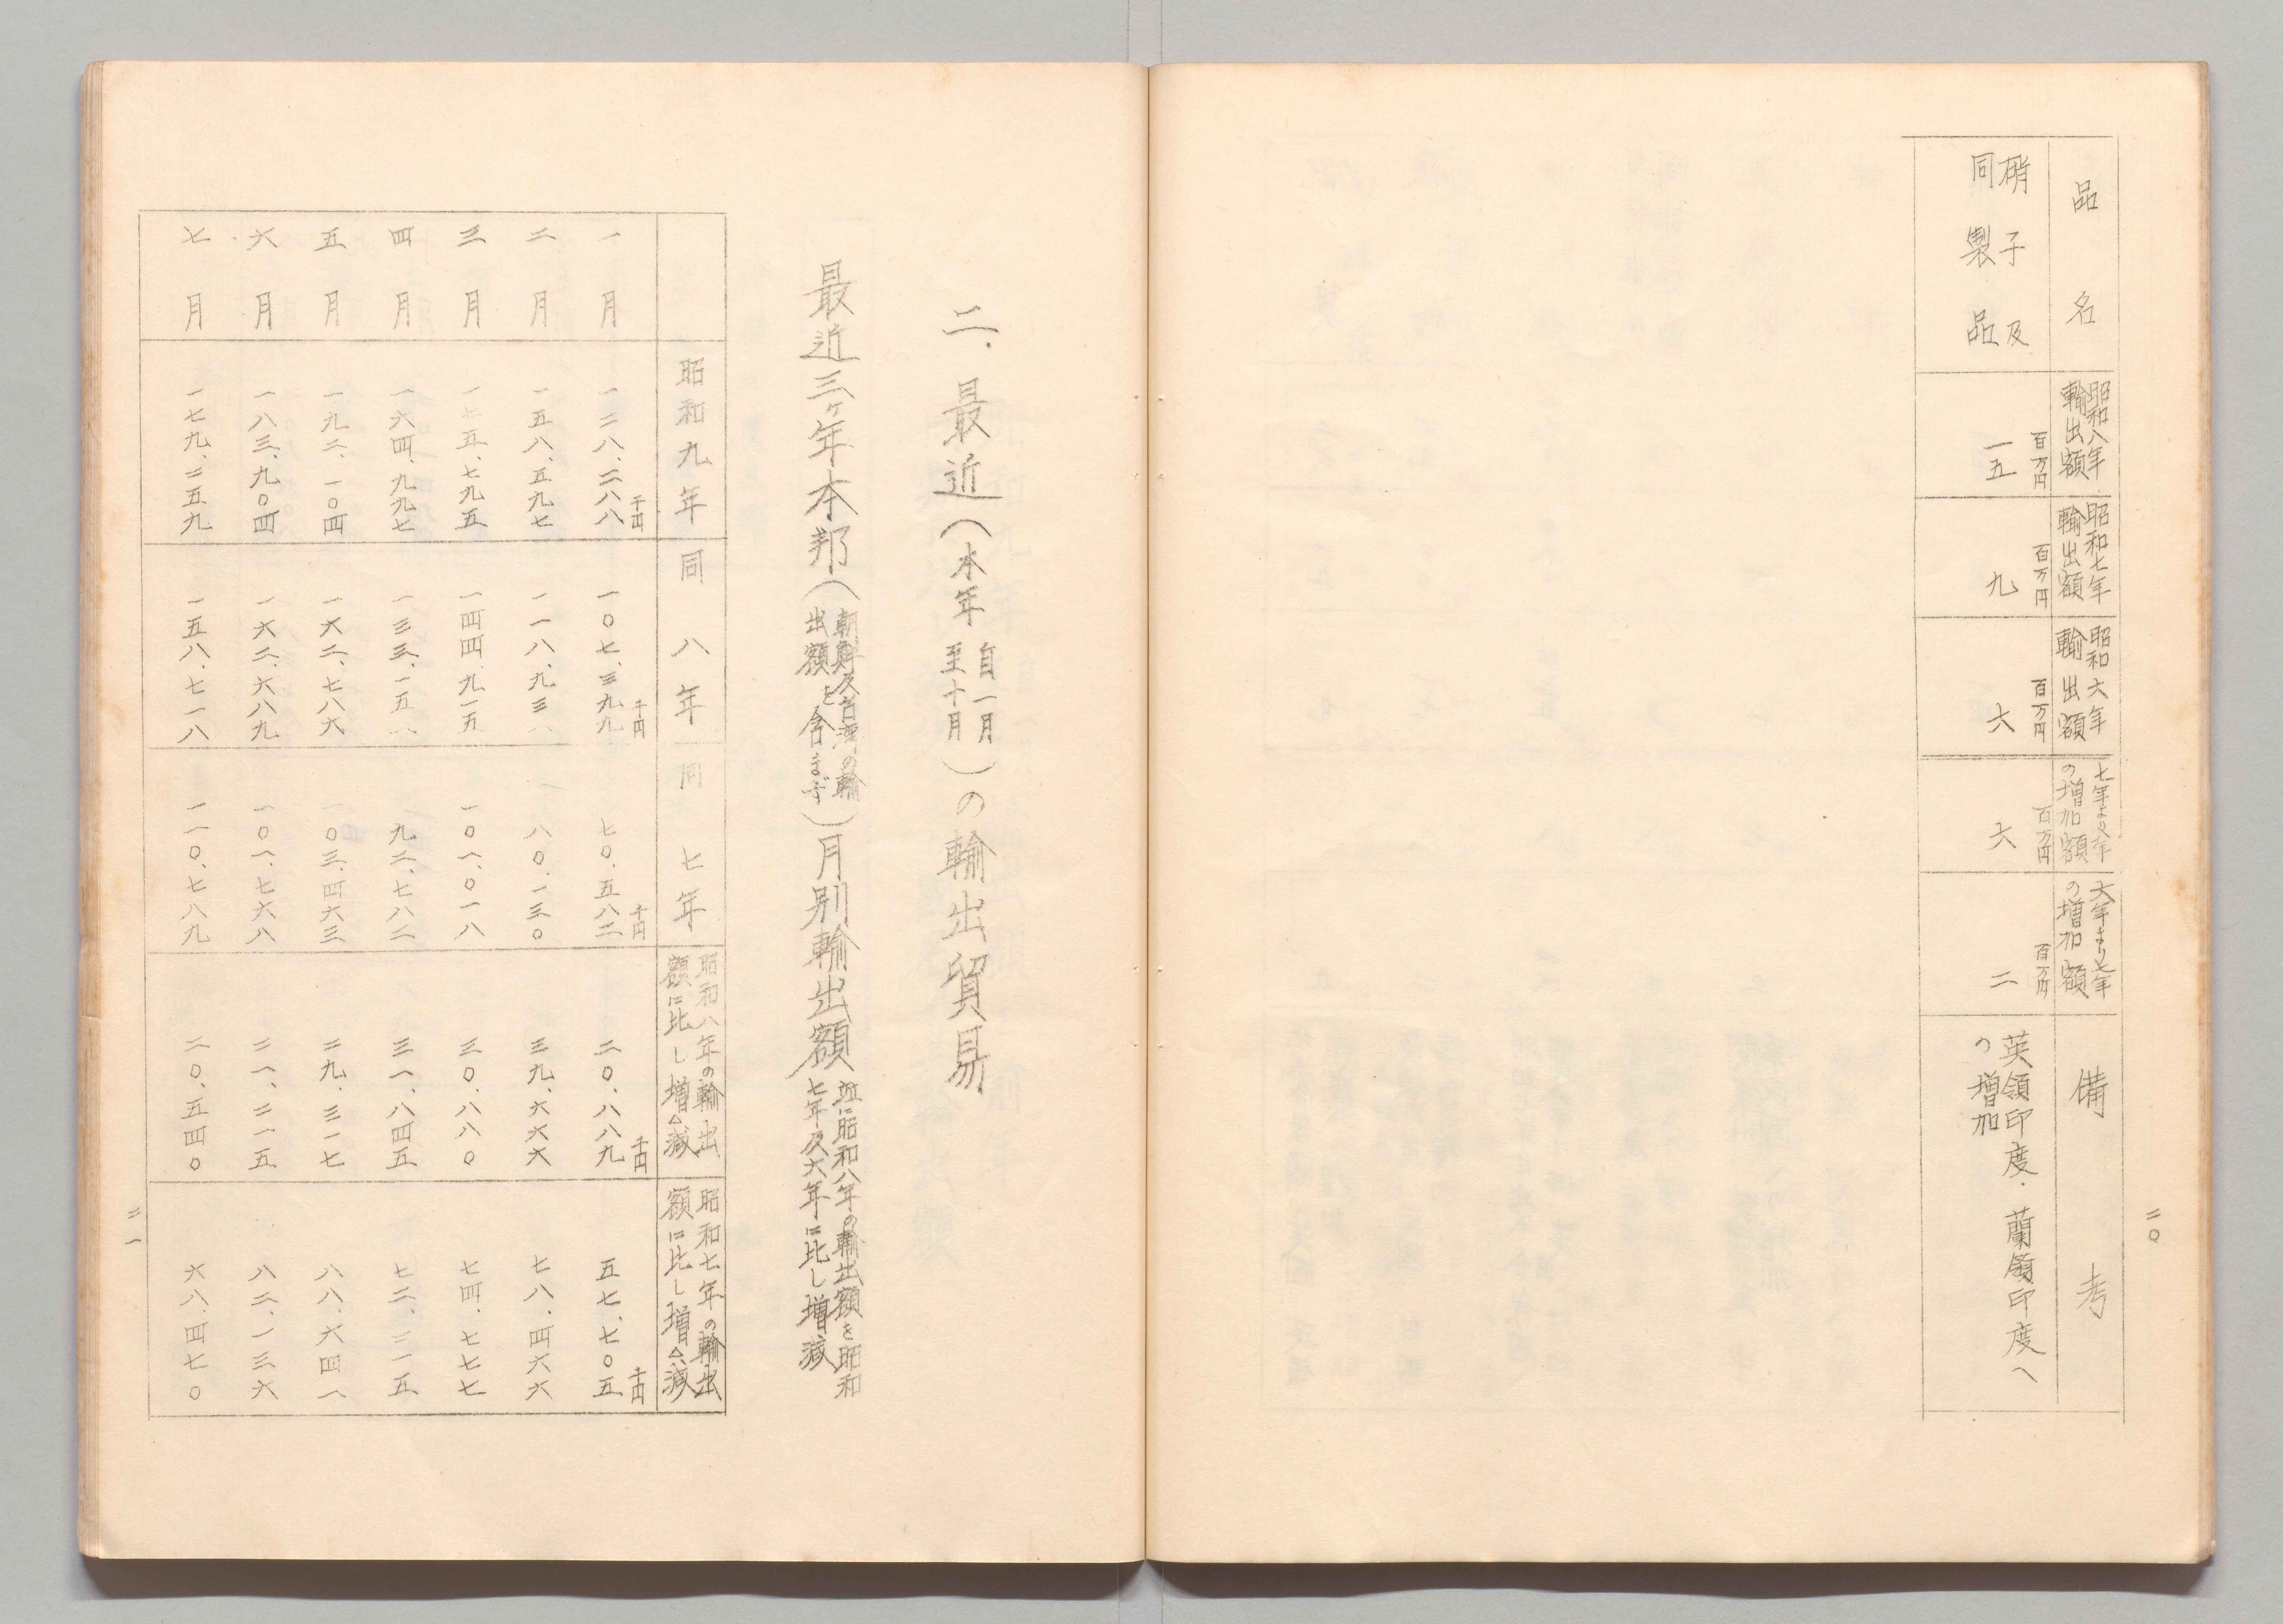 二〇
品名
昭和八年
輸出額
昭和七年
輸出額
昭和六年
輸出額
七年より八年
の増加額
六年より七年
の増加額
備考
硝子及
同製品
百万円
一五
百万円
九
百万円
六
百万円
六
百万円
二
英領印度．蘭領印度へ
の増加
二．最近（本年自一月至十月）の輸出貿易
最近三ヶ年本邦（朝鮮及台湾の輸出額を含まず）月別輸出額
並に昭和八年の輸出額を昭和
七年及六年に比し増減
昭和九年
同八年
同七年
昭和八年の輸出
額に比し増△減
昭和七年の輸出
額に比し増△減
千円
千円
千円
千円
千円
一月 一二八、二八八 一〇七、三九九 七〇、五八二 二〇、八八九 五七、七〇五
二月 一五八、五九七 一一八、九三一 八〇、一三〇 三九、六六六 七八、四六六
三月 一七五、七九五 一四四、九一五 一〇一、〇一八 三〇、八八〇 七四、七七七
四月 一六四、九九七 一三三、一五 九二、七八二 三一、八四五 七二、二一五
五月 一九二、一〇四 一六二、七八六 一〇三、四六三 二九、三一七 八八、六四一
六月 一八三、九〇四 一六二、六八九 一〇一、七六八 二一、二一五 八二、一三六
七月 一七九、二五九 一五八、七一八 一一〇、七八九 二〇、五四〇 六八、四七〇
二一